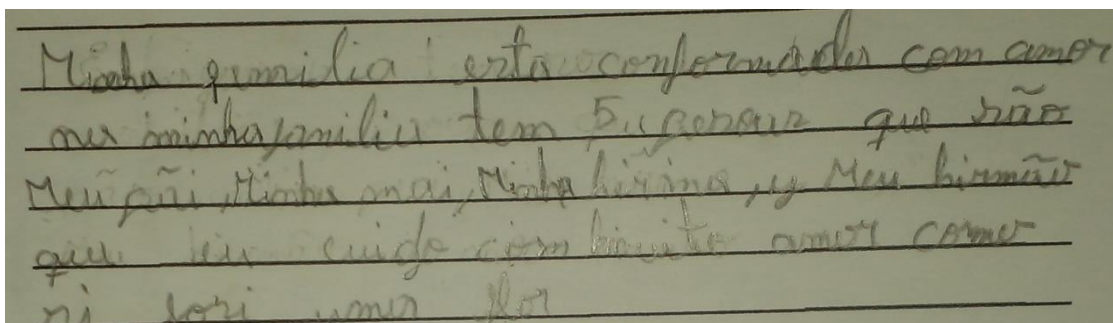 Minha familia esta conformada com amor
na minha familia tem 5 pesoas que são
Meu pãi, Minha mai, Minha hirima, y Meu hirmão
que eu cuido com muito amor como
si fori uma flor